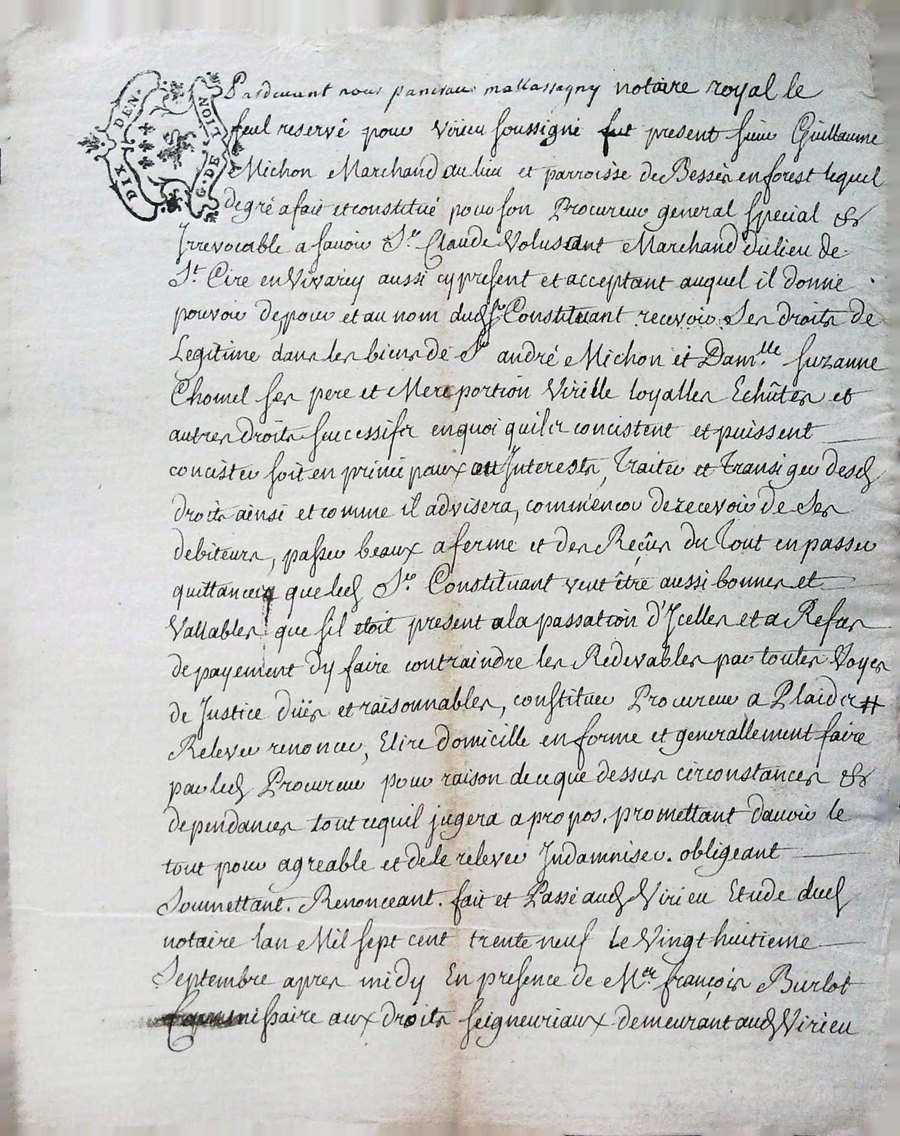 DIX DEN. G. DE NOIT
Pardevant nous pancrace mallassagny notaire royal le
seul reservé pour Virieu soussigné fut present sieur Guillaume
Michon Marchand du lieu et parroisse de Bessés en forest lequel
de gré a fait et constitué pour son Procureur general special &
Irrevocable a savoir Sr. Claude Volusant Marchand du lieu de
St. Cire en Vivarey aussi cy present et acceptant auquel il donne
pouvoir de, pour et au nom dud. Sr. Constituant recevoir Ses droits de
Legitime dans les biens de Sr. andré Michon et Dam.lle Suzanne
Chomel ses pere et Mere portion Virille loyalles Echûtes et
autres droits successifs en quoi quils concistent et puissent
concister soit en principaux ou Interests, Traiter et transiger desd.
droits ainsi et comme il advisera, comm'encor de recevoir de Ses
debiteurs, passer beaux a ferme et des Reçûs du Tout en passer
quittances que led. Sr. Constituant veut être aussi bonnes et
Vallables que sil etoit present a la passation d'Icelles et a Refus
de payement dy faire contraindre les Redevables par toutes Voyes
de Justice duës et raisonnables, constituer Procureur a Plaider #
Relever renoncer, Elire domicille en forme et generallement faire
par led. Procureur pour raison de ce que dessus circonstances &
dependances tout ce quil jugera a propos. promettant davoir le
tout pour agreable et de le relever Indamniser. obligeant
Soumettant. Renonceant. fait et Passé aud. Virieu Etude dud.
notaire lan Mil sept cent trente neuf le Vingt huitieme
Septembre apres midy En presence de Mer. françois Burlot
Commissaire aux droits seigneuriaux demeurant aud. Virieu